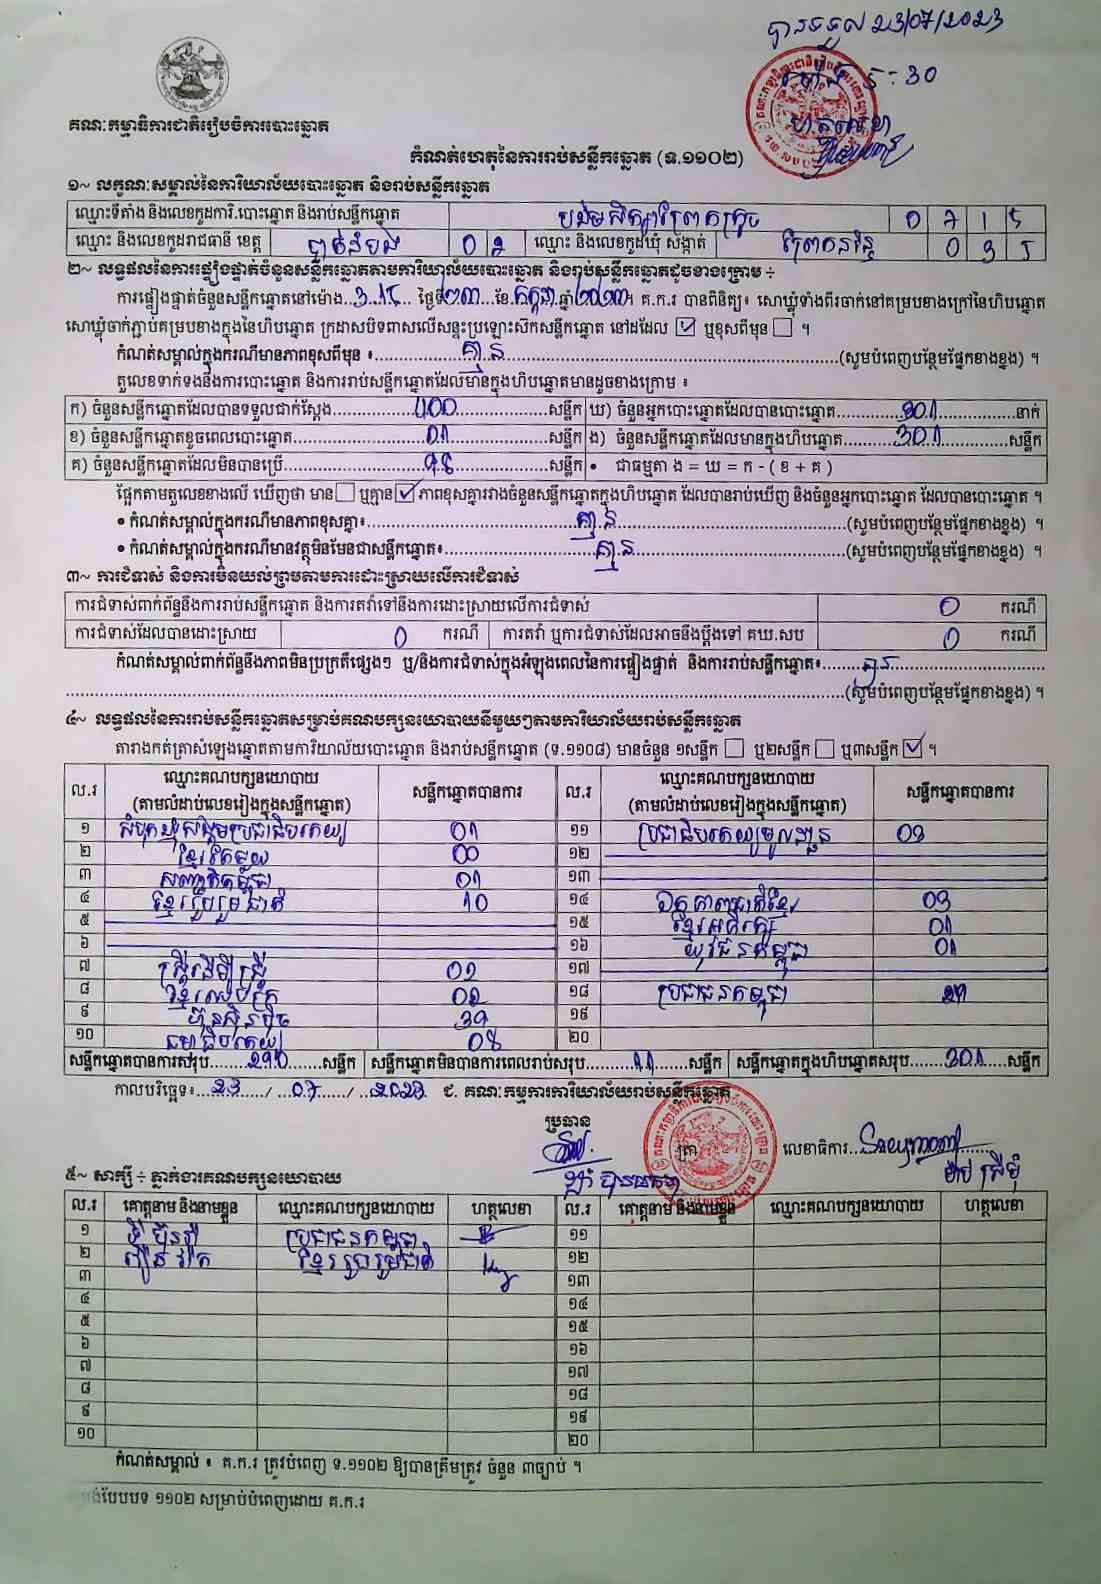 បានទទួល 23/07/2023
ម៉ោង 5:30
ហត្ថលេខា
គណៈកម្មាធិការជាតិរៀបចំការបោះឆ្នោត
កំណត់ហេតុនៃការរាប់សន្លឹកឆ្នោត (ទ.១១០២)
១~ លក្ខណៈសម្គាល់នៃការិយាល័យបោះឆ្នោត និងរាប់សន្លឹកឆ្នោត
ឈ្មោះទីតាំង និងលេខកូដការិ.បោះឆ្នោត និងរាប់សន្លឹកឆ្នោត 0 7 1 5
ឈ្មោះ និងលេខកូដរាជធានី ខេត្ត បាត់ដំបង 0 2 ឈ្មោះ និងលេខកូដឃុំ សង្កាត់ 0 3 5
២~ លទ្ធផលនៃការផ្ទៀងផ្ទាត់ចំនួនសន្លឹកឆ្នោតតាមការិយាល័យបោះឆ្នោត និងរាប់សន្លឹកឆ្នោតដូចខាងក្រោម ÷
ការផ្ទៀងផ្ទាត់ចំនួនសន្លឹកឆ្នោតនៅម៉ោង...3:15... ថ្ងៃទី២៣...ខែ.កក្កដា.ឆ្នាំ២០២៣។ គ.ក.រ បានពិនិត្យ៖ សោឃ្លុំទាំងពីរចាក់នៅគម្របខាងក្រៅនៃហិបឆ្នោត
សោឃ្លុំចាក់ភ្ជាប់គម្របខាងក្នុងនៃហិបឆ្នោត ក្រដាសបិទពាសលើសន្ទះប្រឡោះស៊កសន្លឹកឆ្នោត នៅដដែល ☑ ឬខុសពីមុន ☐ ។
កំណត់សម្គាល់ក្នុងករណីមានភាពខុសពីមុន ៖........គ្មាន........(សូមបំពេញបន្ថែមផ្នែកខាងខ្នង) ។
តួលេខទាក់ទងនឹងការបោះឆ្នោត និងការរាប់សន្លឹកឆ្នោតដែលមានក្នុងហិបឆ្នោតមានដូចខាងក្រោម ៖
ក) ចំនួនសន្លឹកឆ្នោតដែលបានទទួលជាក់ស្តែង........400........សន្លឹក ឃ) ចំនួនអ្នកបោះឆ្នោតដែលបានបោះឆ្នោត........301........នាក់
ខ) ចំនួនសន្លឹកឆ្នោតខូចពេលបោះឆ្នោត........01........សន្លឹក ង) ចំនួនសន្លឹកឆ្នោតដែលមានក្នុងហិបឆ្នោត........301........សន្លឹក
គ) ចំនួនសន្លឹកឆ្នោតដែលមិនបានប្រើ........98........សន្លឹក • ជាធម្មតា ង = ឃ = ក - ( ខ + គ )
ផ្អែកតាមតួលេខខាងលើ ឃើញថា មាន☐ ឬគ្មាន☑ ភាពខុសគ្នារវាងចំនួនសន្លឹកឆ្នោតក្នុងហិបឆ្នោត ដែលបានរាប់ឃើញ និងចំនួនអ្នកបោះឆ្នោត ដែលបានបោះឆ្នោត ។
• កំណត់សម្គាល់ក្នុងករណីមានភាពខុសគ្នា៖........គ្មាន........(សូមបំពេញបន្ថែមផ្នែកខាងខ្នង) ។
• កំណត់សម្គាល់ក្នុងករណីមានវត្ថុមិនមែនជាសន្លឹកឆ្នោត៖........គ្មាន........(សូមបំពេញបន្ថែមផ្នែកខាងខ្នង) ។
៣~ ការជំទាស់ និងការមិនយល់ព្រមតាមការដោះស្រាយលើការជំទាស់
ការជំទាស់ពាក់ព័ន្ធនឹងការរាប់សន្លឹកឆ្នោត និងការតវ៉ាទៅនឹងការដោះស្រាយលើការជំទាស់ 0 ករណី
ការជំទាស់ដែលបានដោះស្រាយ 0 ករណី ការតវ៉ា ឬការជំទាស់ដែលអាចនឹងប្តឹងទៅ គឃ.សប 0 ករណី
កំណត់សម្គាល់ពាក់ព័ន្ធនឹងភាពមិនប្រក្រតីផ្សេងៗ ឬ/និងការជំទាស់ក្នុងអំឡុងពេលនៃការផ្ទៀងផ្ទាត់ និងការរាប់សន្លឹកឆ្នោត៖........គ្មាន........
........(សូមបំពេញបន្ថែមផ្នែកខាងខ្នង) ។
៤~ លទ្ធផលនៃការរាប់សន្លឹកឆ្នោតសម្រាប់គណបក្សនយោបាយនីមួយៗតាមការិយាល័យរាប់សន្លឹកឆ្នោត
តារាងកត់ត្រាសំឡេងឆ្នោតតាមការិយាល័យបោះឆ្នោត និងរាប់សន្លឹកឆ្នោត (ទ.១១០៨) មានចំនួន ១សន្លឹក ☐ ឬ២សន្លឹក ☐ ឬ៣សន្លឹក ☑ ។
ល.រ ឈ្មោះគណបក្សនយោបាយ (តាមលំដាប់លេខរៀងក្នុងសន្លឹកឆ្នោត) សន្លឹកឆ្នោតបានការ ល.រ ឈ្មោះគណបក្សនយោបាយ (តាមលំដាប់លេខរៀងក្នុងសន្លឹកឆ្នោត) សន្លឹកឆ្នោតបានការ
១ សំបុកឃ្មុំសង្គមប្រជាធិបតេយ្យ 01 ១១ ប្រជាធិបតេយ្យមូលដ្ឋាន 03
២ ខ្មែរតែមួយ 00 ១២
៣ សញ្ជាតិកម្ពុជា 01 ១៣
៤ ខ្មែររួបរួមជាតិ 10 ១៤ ឯកភាពជាតិខ្មែរ 03
៥ ១៥ ខ្មែរអភិរក្ស 01
៦ ១៦ យុវជនកម្ពុជា 01
៧ ស្ត្រីដើម្បីស្ត្រី 02 ១៧
៨ 02 ១៨ ប្រជាជនកម្ពុជា
៩ ហ៊្វុនស៊ិនប៉ិច ១៩
១០ ធម្មាធិបតេយ្យ 08 ២០
សន្លឹកឆ្នោតបានការសរុប........290........សន្លឹក សន្លឹកឆ្នោតមិនបានការពេលរាប់សរុប........11........សន្លឹក សន្លឹកឆ្នោតក្នុងហិបឆ្នោតសរុប........301........សន្លឹក
កាលបរិច្ឆេទ៖...23.../...07.../...2023 ជ. គណៈកម្មការការិយាល័យរាប់សន្លឹកឆ្នោត
ប្រធាន ត្រា លេខាធិការ
៥~ សាក្សី ÷ ភ្នាក់ងារគណបក្សនយោបាយ
ល.រ គោត្តនាម និងនាមខ្លួន ឈ្មោះគណបក្សនយោបាយ ហត្ថលេខា ល.រ គោត្តនាម និងនាមខ្លួន ឈ្មោះគណបក្សនយោបាយ ហត្ថលេខា
១ ប្រជាជនកម្ពុជា ១១
២ ខ្មែររួបរួមជាតិ ១២
៣ ១៣
៤ ១៤
៥ ១៥
៦ ១៦
៧ ១៧
៨ ១៨
៩ ១៩
១០ ២០
កំណត់សម្គាល់ ៖ គ.ក.រ ត្រូវបំពេញ ទ.១១០២ ឱ្យបានត្រឹមត្រូវ ចំនួន ៣ច្បាប់ ។
បែបបទ ១១០២ សម្រាប់បំពេញដោយ គ.ក.រ